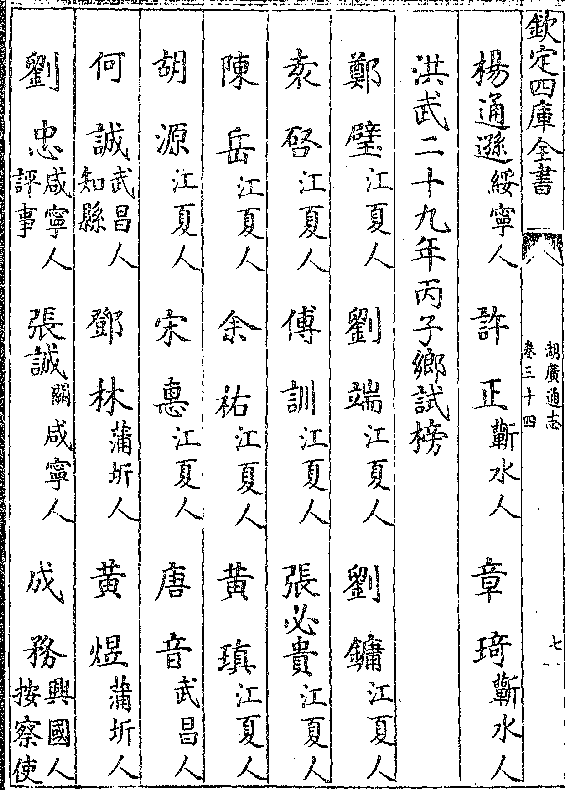 欽定四庫全書
湖廣通志
卷三十四
七
楊通遜綏寧人 許正蘄水人 章琦蘄水人
洪武二十九年丙子鄉試榜
鄭璧江夏人 劉端江夏人 劉鏞江夏人
袁啓江夏人 傅訓江夏人 張必貴江夏人
陳岳江夏人 余祐江夏人 黄瑱江夏人
胡源江夏人 宋惠江夏人 唐音武昌人
何誠武昌人知縣 鄧林蒲圻人 黄煜蒲圻人
劉忠咸寧人評事 張誠咸寧人 成務興國人按察使